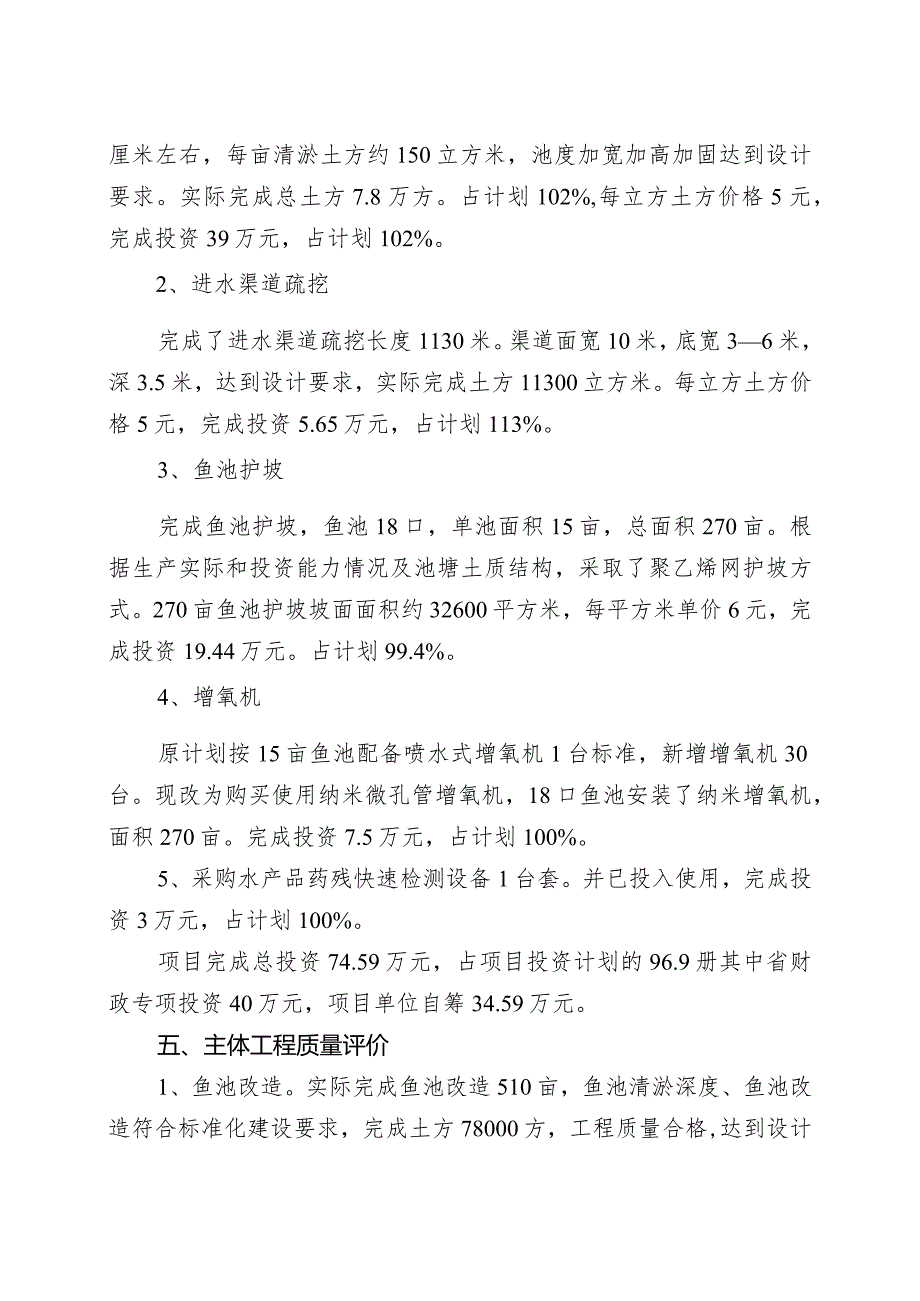 厘米左右，每亩清淤土方约 150 立方米，池度加宽加高加固达到设计
要求。实际完成总土方 7.8 万方。占计划 102%,每立方土方价格 5 元，
完成投资 39 万元，占计划 102%。
2、进水渠道疏挖
完成了进水渠道疏挖长度 1130 米。渠道面宽 10 米，底宽 3—6 米，
深 3.5 米，达到设计要求，实际完成土方 11300 立方米。每立方土方价
格 5 元，完成投资 5.65 万元，占计划 113%。
3、鱼池护坡
完成鱼池护坡，鱼池 18 口，单池面积 15 亩，总面积 270 亩。根
据生产实际和投资能力情况及池塘土质结构，采取了聚乙烯网护坡方
式。270 亩鱼池护坡坡面面积约 32600 平方米，每平方米单价 6 元，完
成投资 19.44 万元。占计划 99.4%。
4、增氧机
原计划按 15 亩鱼池配备喷水式增氧机 1 台标准，新增增氧机 30
台。现改为购买使用纳米微孔管增氧机，18 口鱼池安装了纳米增氧机，
面积 270 亩。完成投资 7.5 万元，占计划 100%。
5、采购水产品药残快速检测设备 1 台套。并已投入使用，完成投
资 3 万元，占计划 100%。
项目完成总投资 74.59 万元，占项目投资计划的 96.9 册其中省财
政专项投资 40 万元，项目单位自筹 34.59 万元。
五、主体工程质量评价
1、鱼池改造。实际完成鱼池改造 510 亩，鱼池清淤深度、鱼池改
造符合标准化建设要求，完成土方 78000 方，工程质量合格,达到设计